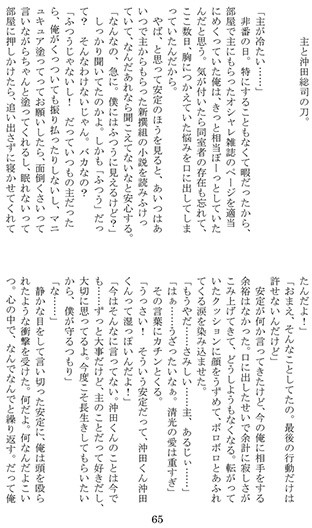 主と沖田総司の刀。
「主が冷たい……」
非番の日。特にすることもなくて暇だったから、
部屋で主にもらったオシャレ雑誌のページを適当
にめくっていた俺は、きっと相当ぼーっとしていた
んだと思う。気が付いたら同室者の存在も忘れて、
ここ数日、胸につかえていた悩みを口に出してしま
っていたんだから。
やば、と思って安定のほうを見ると、あいつはあ
いつで主からもらった新撰組の小説を読みふけっ
ていて、なんだあれなら聞こえてないなと安心する。
「なんなの、急に。僕にはふつうに見えるけど？」
しっかり聞いてたのかよ。しかも「ふつう」だっ
て？　そんなわけないじゃん。バカなの？
「ふつうじゃないし！　だっていつもの主だった
ら、俺がくっついても振り払ったりしないし、マニ
キュア塗ってってお願いしたら、面倒くさいって
言いながらちゃんと塗ってくれるし、眠れないって
部屋に押しかけたら追い出さずに寝かせてくれて
たんだよ！」
「おまえ、そんなことしてたの。最後の行動だけは
許せないんだけど」
安定が何か言ってきたけど、今の俺に相手をする
余裕はなかった。口に出したせいで余計に寂しさが
こみ上げてきて、どうしようもなくなる。転がって
いたクッションに顔をうずめて、ボロボロとあふれ
てくる涙を染み込ませた。
「もうやだ……さみしい……主、あるじぃ……」
「はぁ……うざったいなぁ。清光の愛は重すぎ」
その言葉にカチンとくる。
「うっさい！　そういう安定だって、沖田くん沖田
くんって湿っぽいんだよ！」
「今はそんなに言ってない。沖田くんのことは今で
も……ずっと大事だけど、主のことだって好きだし、
大切に思ってるよ、今度こそ長生きしてもらいたい
から、僕が守るつもり」
「な……」
静かな目をして言い切った安定に、俺は頭を殴ら
れたような衝撃を受けた。何だよ。何なんだよこい
つ。心の中で、なんでなんでと繰り返す。だって俺
65